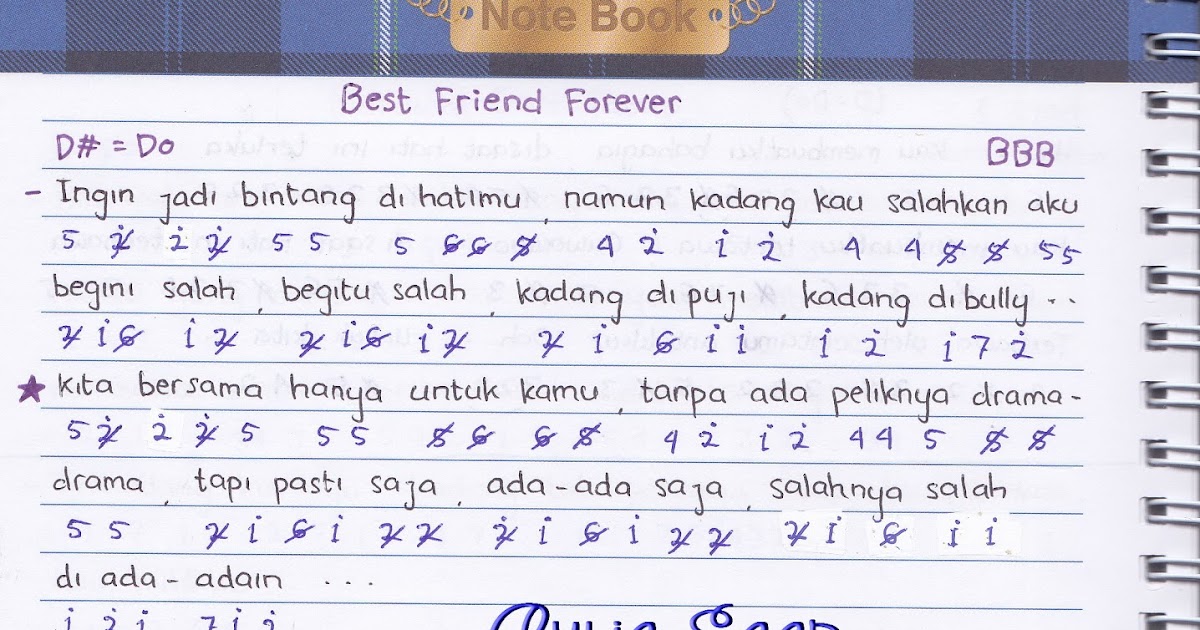 Note Book
Best Friend Forever
D# = Do BBB
- Ingin jadi bintang dihatimu, namun kadang kau salahkan aku
5 2̸̇ 2̇ 2̸̇ 5 5 5 6̸ 6̸ 5̸ 4 2̇ 1̇ 2̇ 4 4 5̸ 5̸ 5 5
begini salah, begitu salah, kadang dipuji, kadang dibully..
7̸ 1̇ 6̸ 1̇ 7̸ 7̸ 1̇ 6̸ 1̇ 7̸ 7̸ 1̇ 6̸ 1̇ 1̇ 1̇ 2̇ 1̇ 7 2̇
★ kita bersama hanya untuk kamu, tanpa ada peliknya drama-
5 2̸̇ 2̇ 2̸̇ 5 5 5 5̸ 6̸ 6̸ 5̸ 4 2̇ 1̇ 2̇ 4 4 5 5̸ 5̸
drama, tapi pasti saja, ada-ada saja, salahnya salah
5 5 7̸ 1̇ 6̸ 1̇ 7̸ 7̸ 7̸ 1̇ 6̸ 1̇ 7̸ 7̸ 7̸ 1̇ 6̸ 1̇ 1̇
di ada-adain ...
1̇ 2̇ 1̇ 7 1̇ 2̇